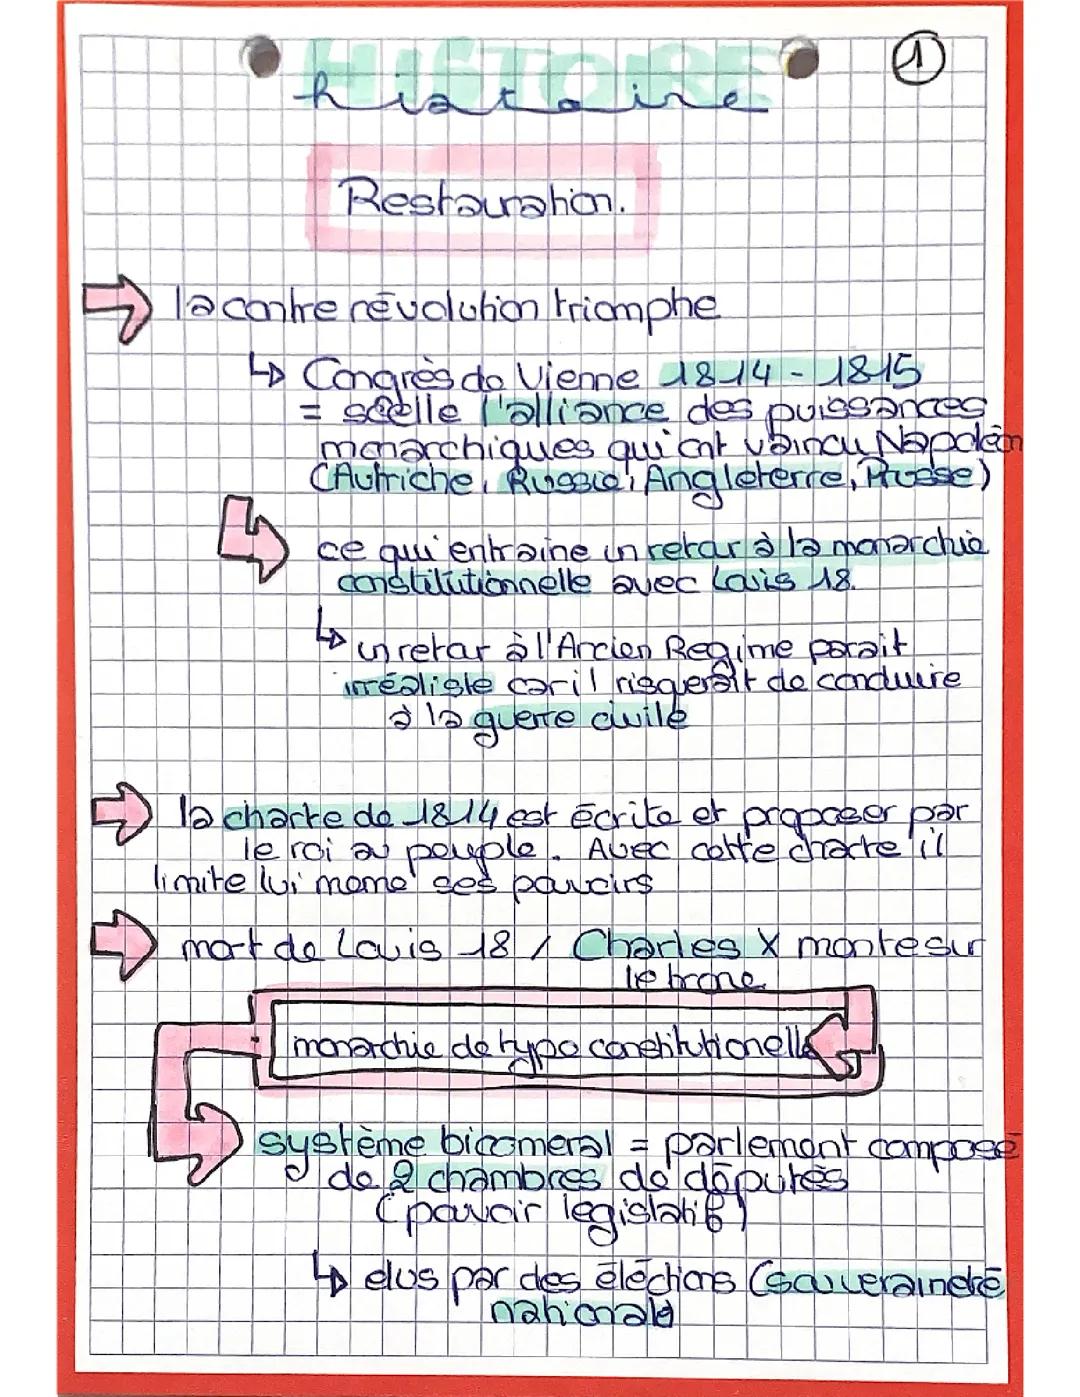 1
HISTOIRE
histoire
Restauration.
la contre révolution triomphe
Congrès de Vienne 1814 - 1815
= scelle l'alliance des puissances
monarchiques qui ont vaincu Napoléon
(Autriche, Russie, Angleterre, Prusse)
ce qui entraine un retour à la monarchie
constitutionnelle avec Louis 18.
un retour à l'Ancien Regime parait
irréaliste car il risquerait de conduire
à la guerre civile
la charte de 1814 est écrite et proposer par
le roi au peuple. Avec cette charte il
limite lui meme ses pouvoirs
mort de Louis 18 / Charles X monte sur
le trone
monarchie de type constitutionelle
système bicameral = parlement composé
de 2 chambres de députés
(pouvoir legislatif)
elus par des élections (souveraineté
nationale